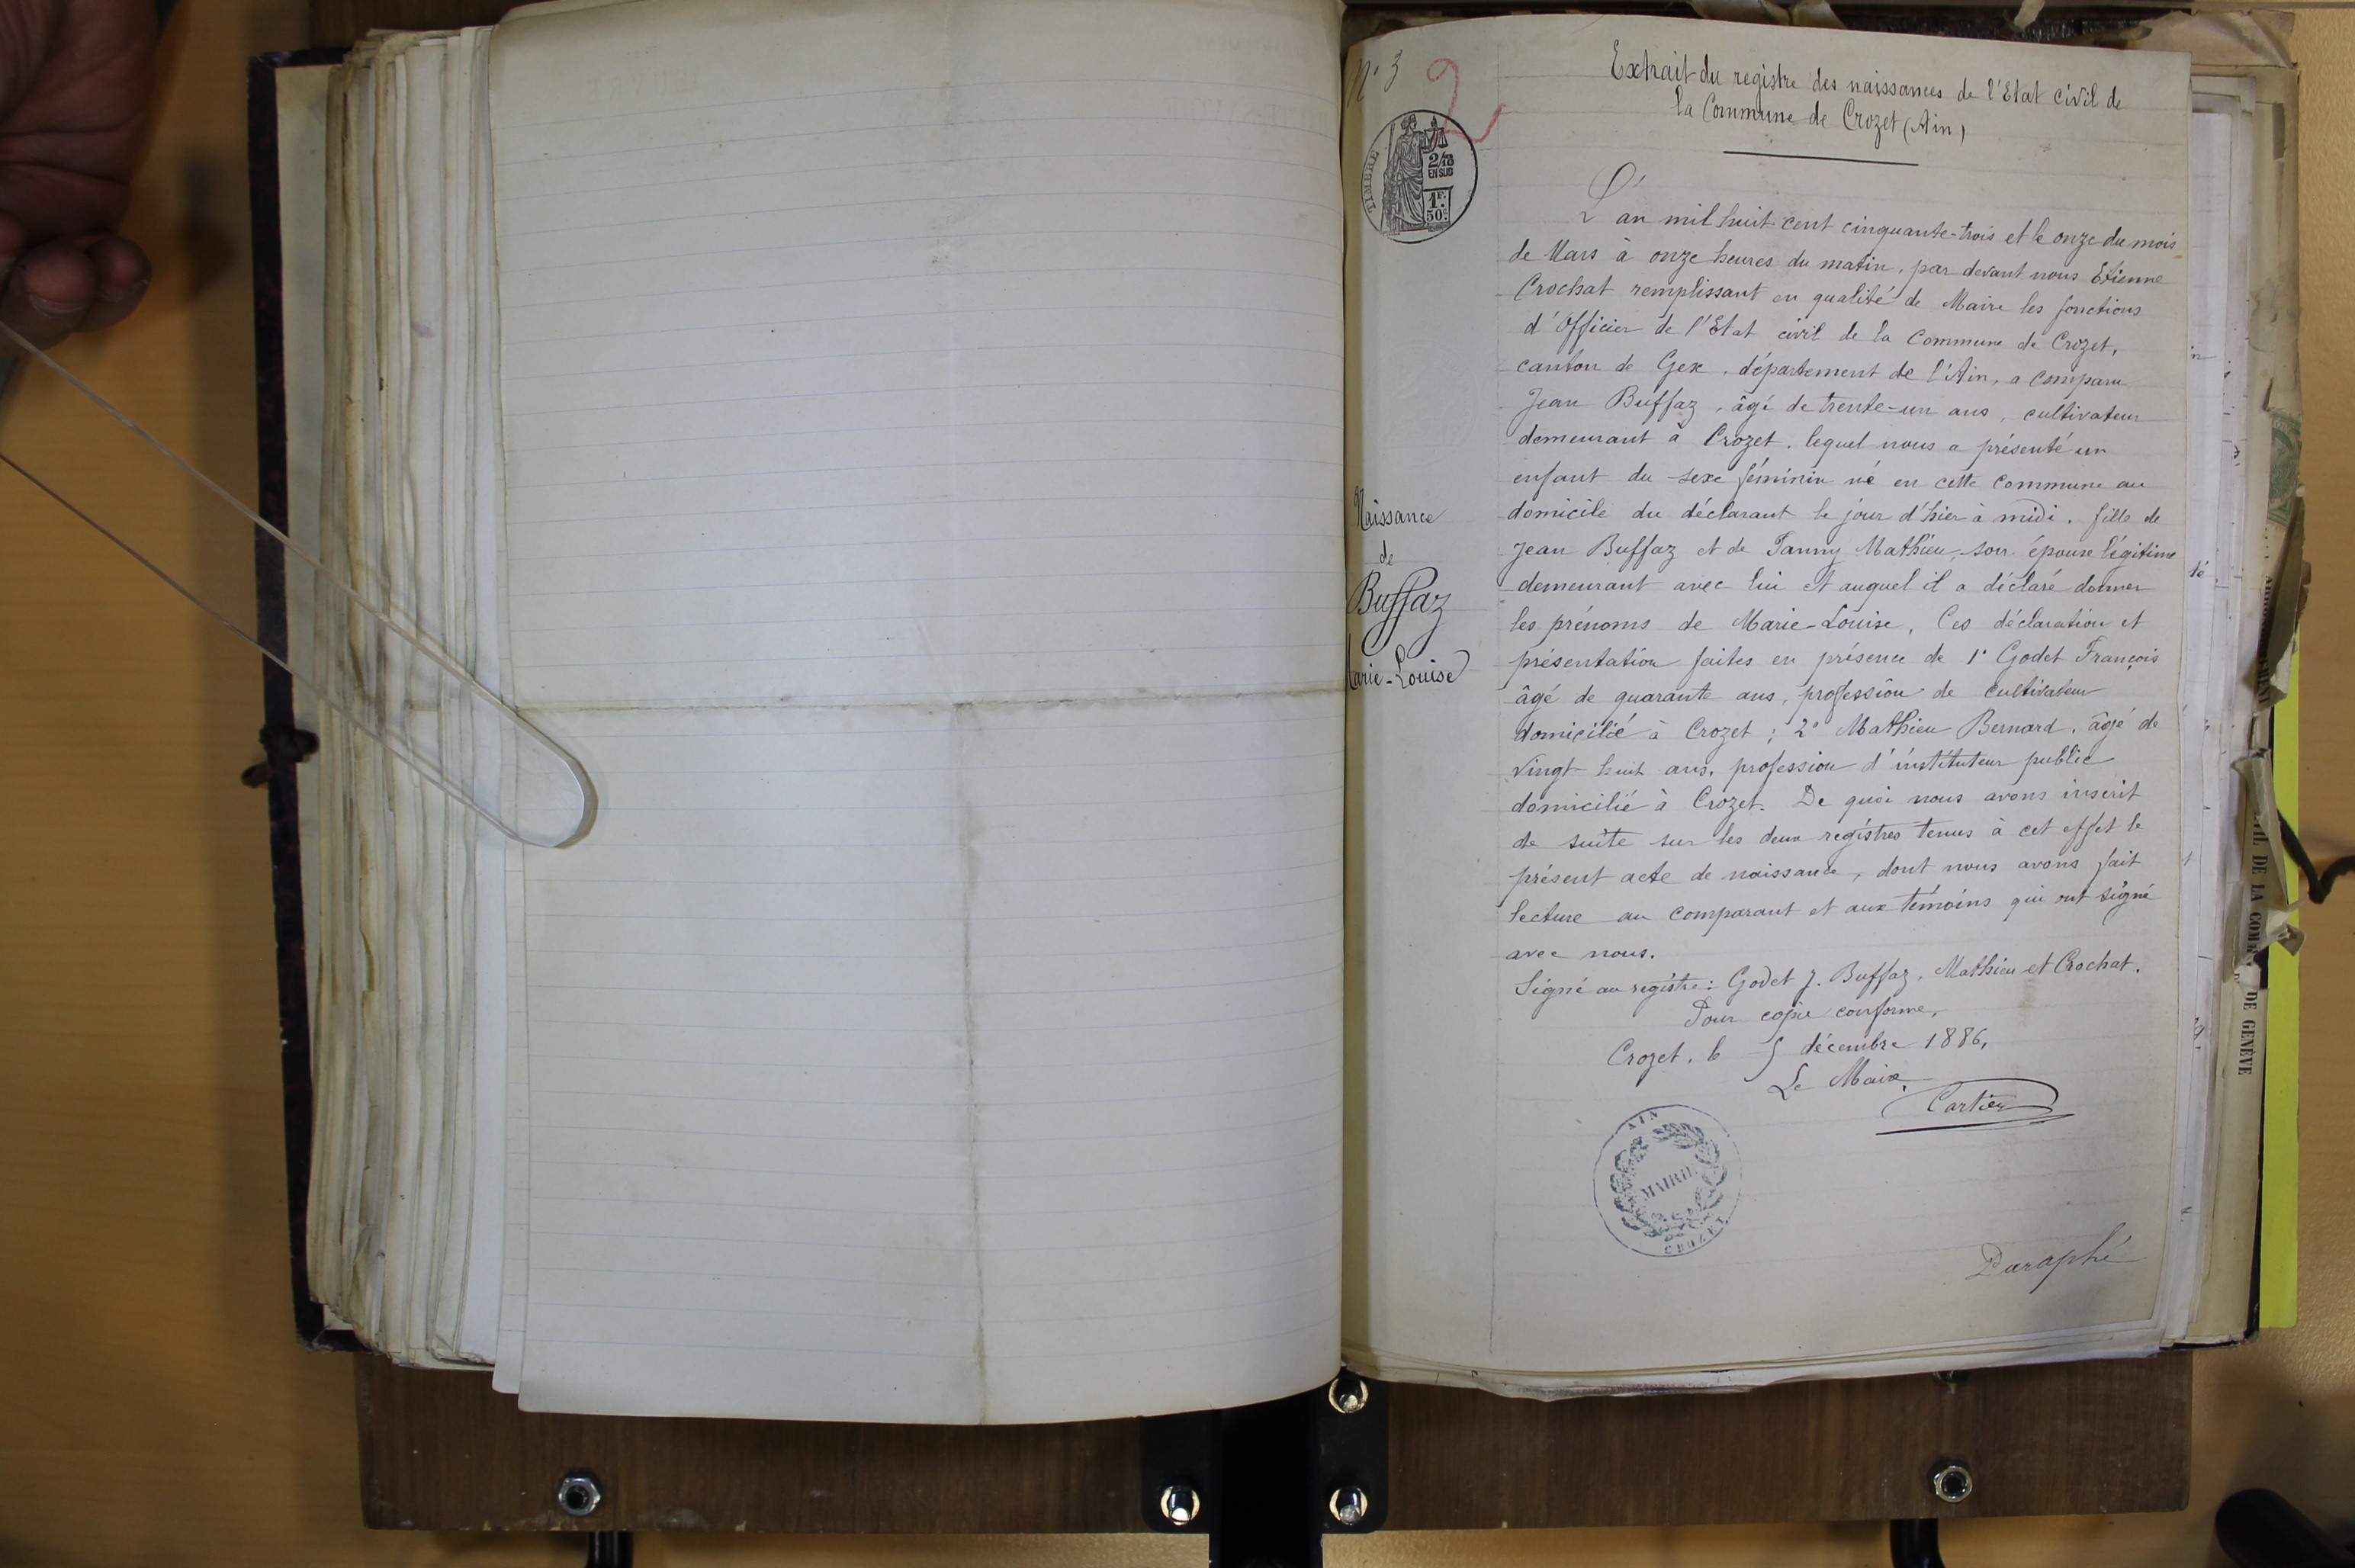 N° 3
2
Extrait du registre des naissances de l'Etat civil de
la Commune de Crozet (Ain)
TIMBRE
2/10
EN SUS
1F.
50c.
L'an mil huit cent cinquante-trois et le onze du mois
de Mars à onze heures du matin, par devant nous Etienne
Crochat remplissant en qualité de Maire les fonctions
d'Officier de l'Etat civil de la Commune de Crozet,
canton de Gex, département de l'Ain, a comparu
Jean Buffaz, âgé de trente-un ans, cultivateur
demeurant à Crozet, lequel nous a présenté un
enfant du sexe féminin né en cette Commune au
domicile du déclarant le jour d'hier à midi, fille de
Jean Buffaz et de Fanny Mathieu, son épouse légitime
demeurant avec lui et auquel il a déclaré donner
les prénoms de Marie-Louise, Ces déclaration et
présentation faites en présence de 1° Godet François
âgé de quarante ans, profession de cultivateur
domicilié à Crozet ; 2° Mathieu Bernard, âgé de
vingt-huit ans, profession d'instituteur public
domicilié à Crozet. De quoi nous avons inscrit
de suite sur les deux registres tenus à cet effet le
présent acte de naissance, dont nous avons fait
lecture au comparant et aux témoins qui ont signé
avec nous.
Signé au registre: Godet J. Buffaz, Mathieu et Crochat.
Pour copie conforme,
Crozet, le 5 décembre 1886,
Le Maire,
Cartier
AIN
MAIRIE
CROZET
Paraphé
Naissance
de
Buffaz
Marie-Louise
DE LA COMMUNE DE GENÈVE